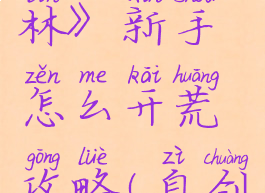 林》 新手
zěn me kāi huāng
怎么开荒
gōng lüè zì chuàng
攻略(自创